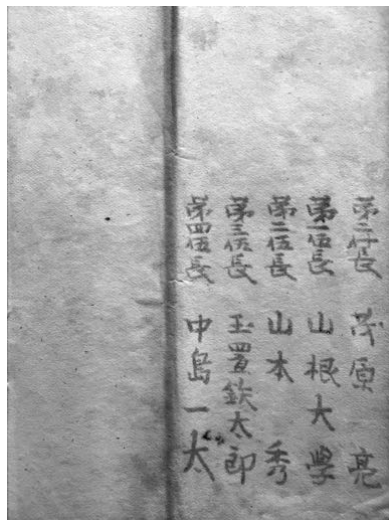 第二什長 茂原 亮
第一伍長 山根大學
第二伍長 山本 秀
第三伍長 玉置欽太郎
第四伍長 中島一大